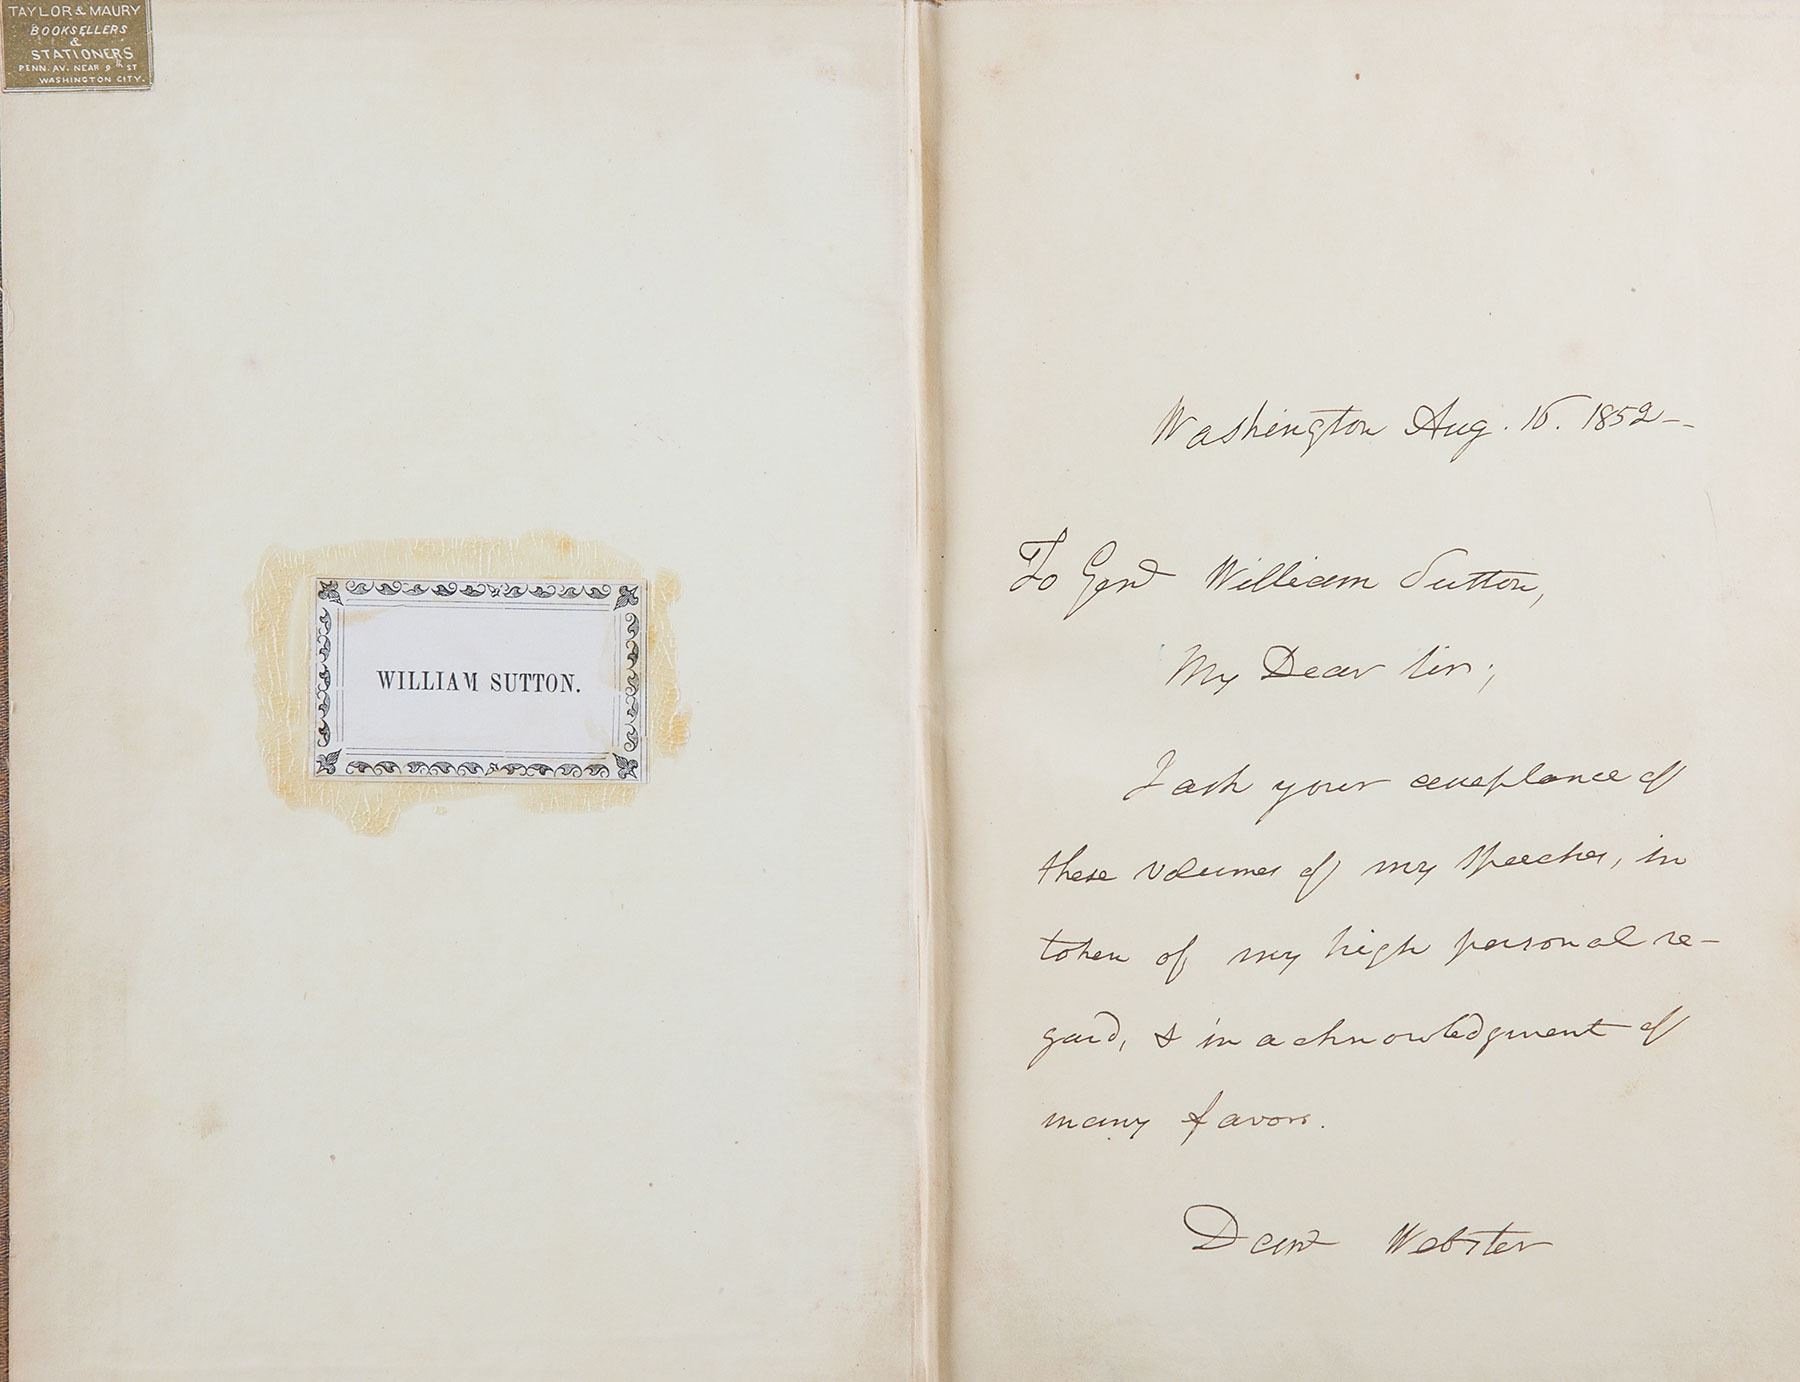 TAYLOR & MAURY
BOOKSELLERS
&
STATIONERS
PENN. AV. NEAR 9th ST
WASHINGTON CITY.
WILLIAM SUTTON.
Washington Aug. 1852--
To Genl William Sutton,
My Dear Sir;
I ask your acceptance of
these volumes of my speeches, in
token of my high personal re-
gard, & in acknowledgment of
many favors.
Danl Webster